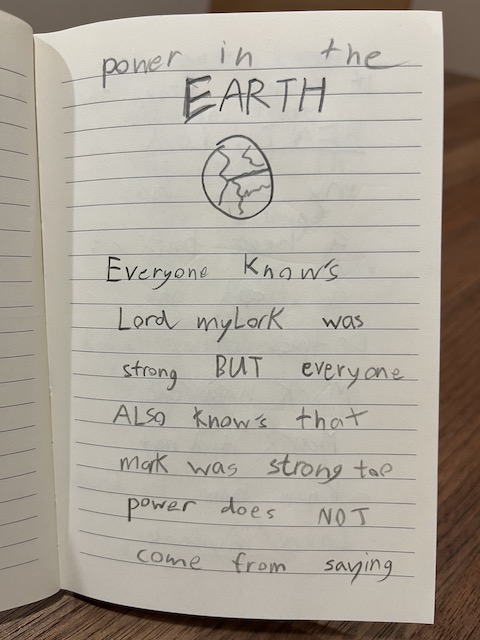 power in the
EARTH
Everyone Know's
Lord myLorK was
strong BUT everyone
ALSO know's that
mork was strong toe
power does NOT
come from saying